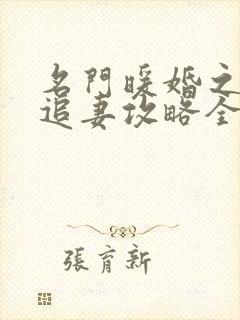 名門暖婚之
追妻攻略全
張育新